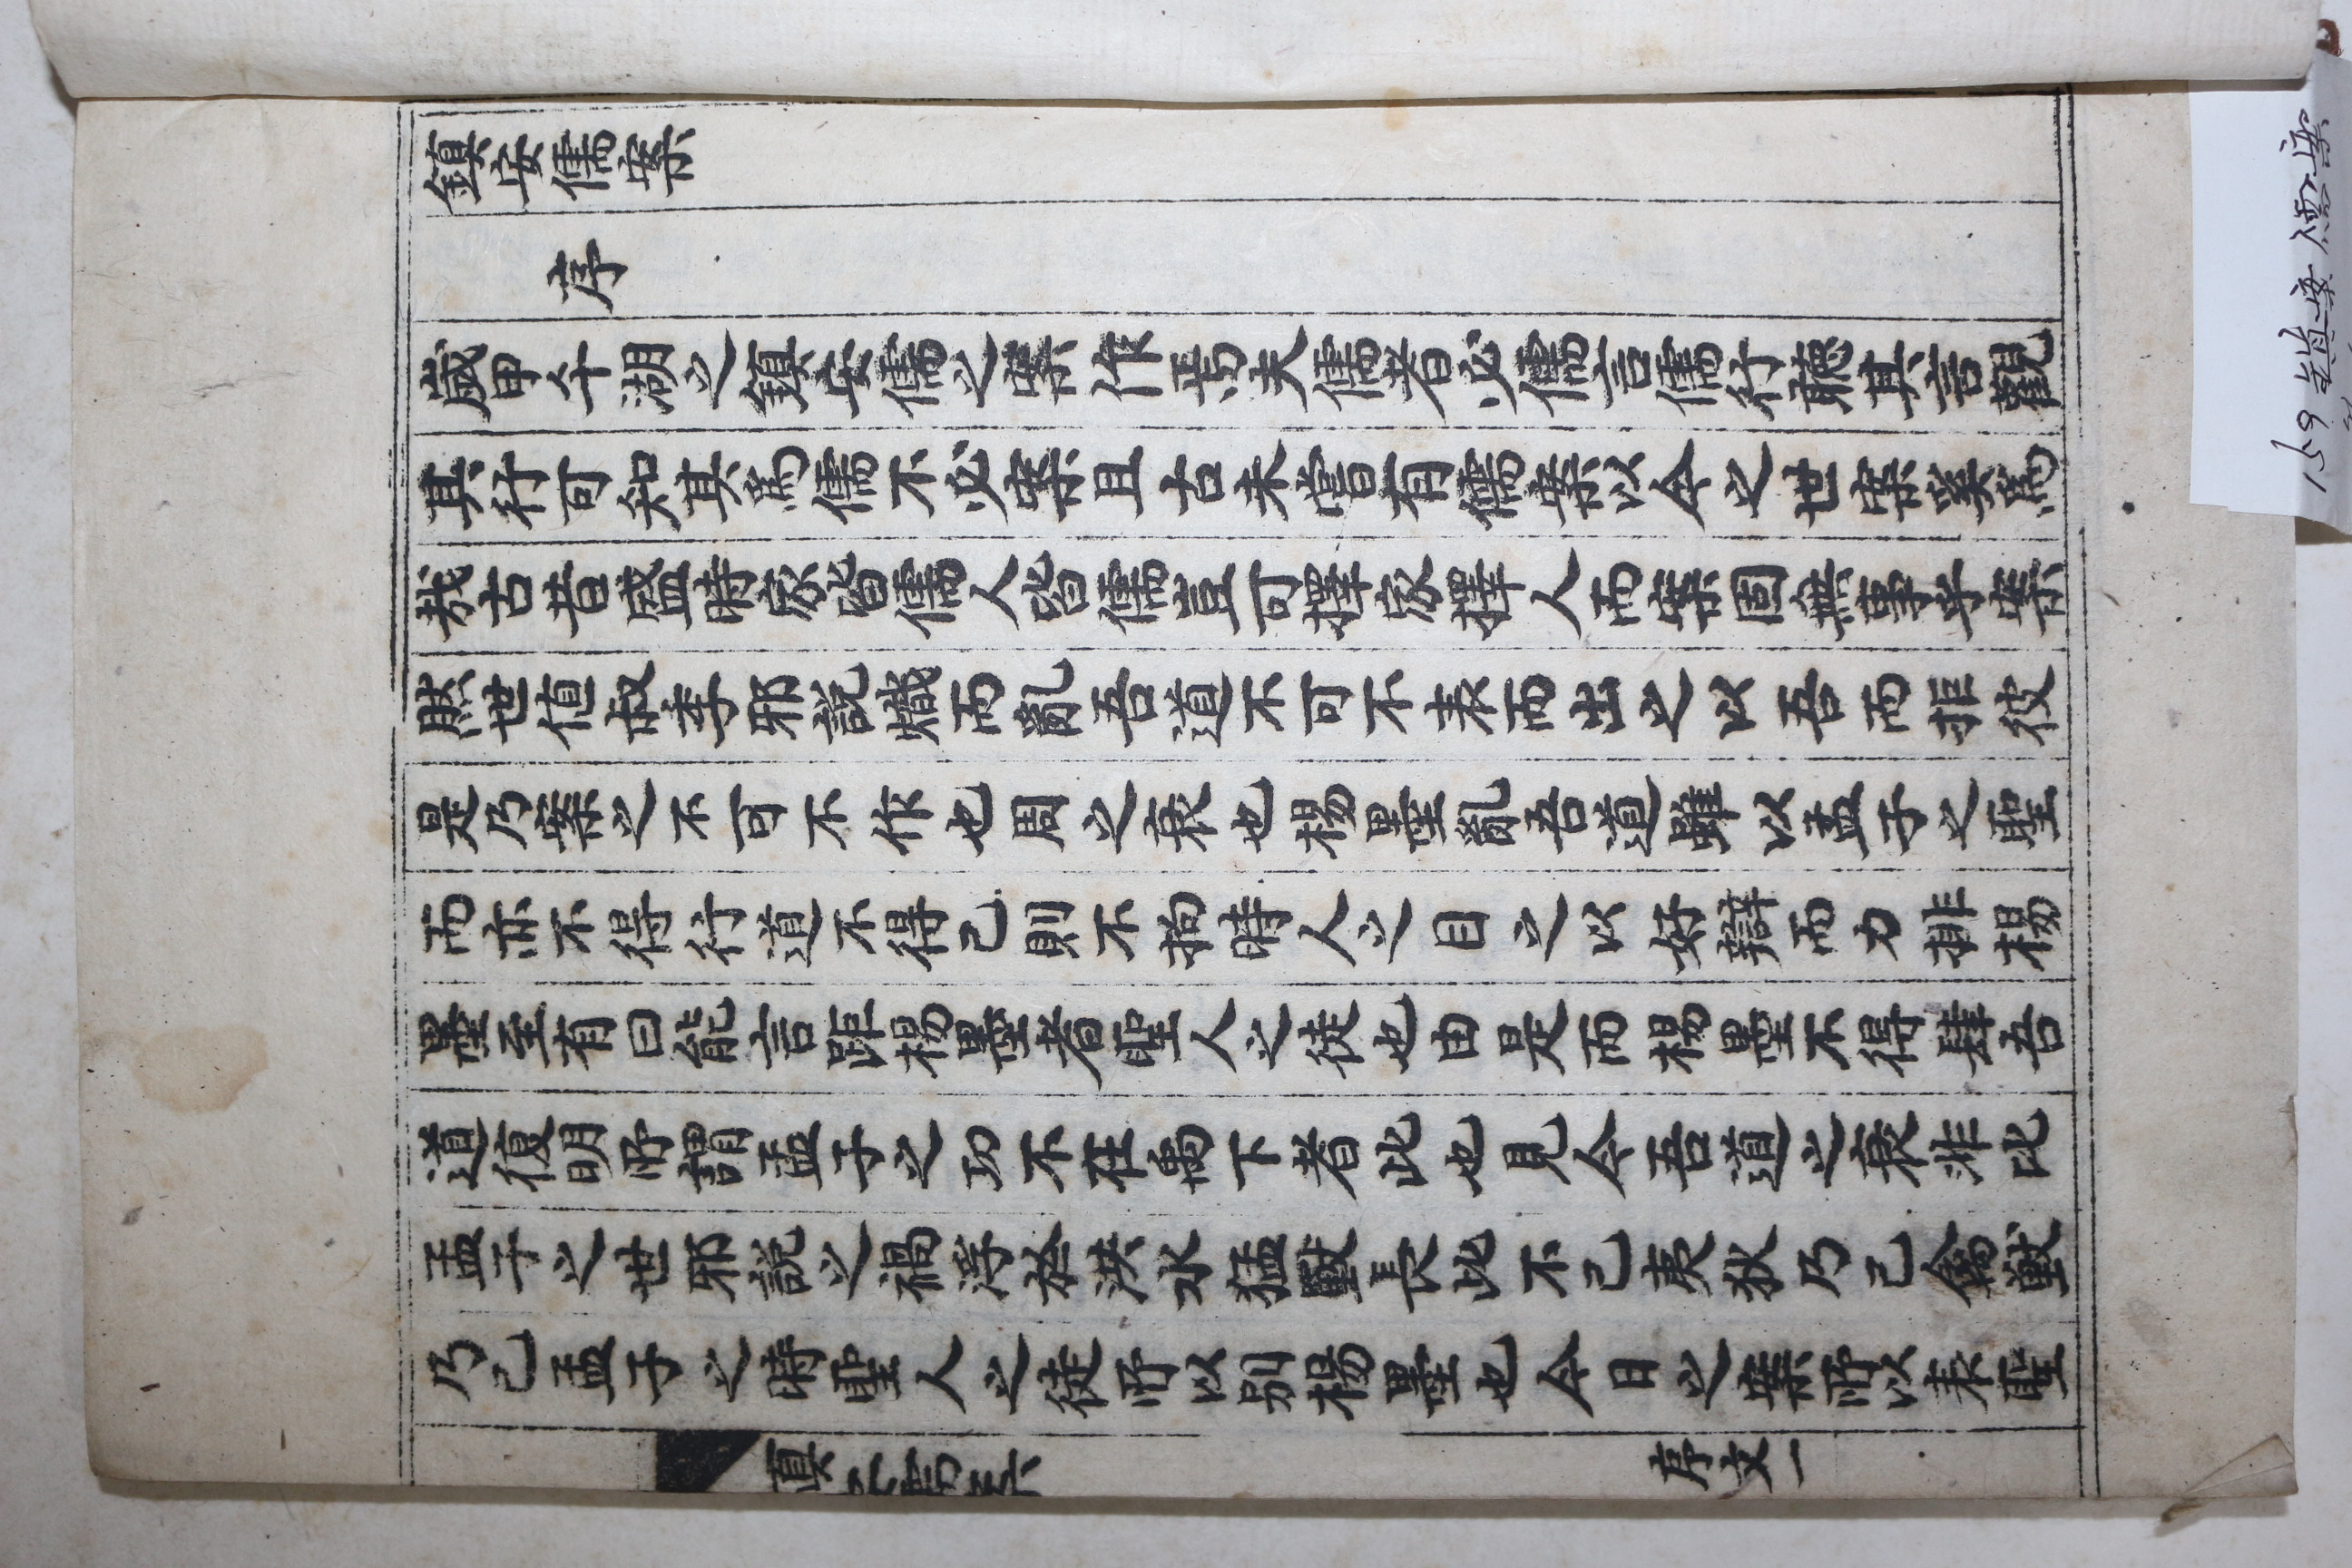 鎮安儒案
序
歲甲午湖之鎮安儒之案作焉夫儒者必儒言儒行聽其言觀
其行可知其爲儒不必案且古未嘗有儒案以今之世案奚爲
哉古昔盛時家皆儒人皆儒豈可擇家擇人而案固無事乎案
然世値叔季邪説熾而亂吾道不可不表而出之以吾而拒彼
是乃案之不可不作也周之衰也楊墨亂吾道雖以孟子之聖
而亦不得行道不得已則不拘時人之目之以好辯而力排楊
墨至有曰能言距楊墨者聖人之徒也由是而楊墨不得肆吾
道復明所謂孟子之功不在禹下者此也見今吾道之衰非比
孟子之世邪説之禍浮於洪水猛獸長此不已夷狄乃已禽獸
乃已孟子之時聖人之徒所以别楊墨也今日之案所以表聖
鎮安儒案
序文一
159 鎮安儒案